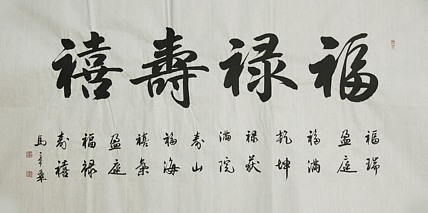 福禄壽禧
福瑞
盈庭
福满
乾坤
禄
满院
寿山
福海
禧
盈庭
福禄
寿禧
马